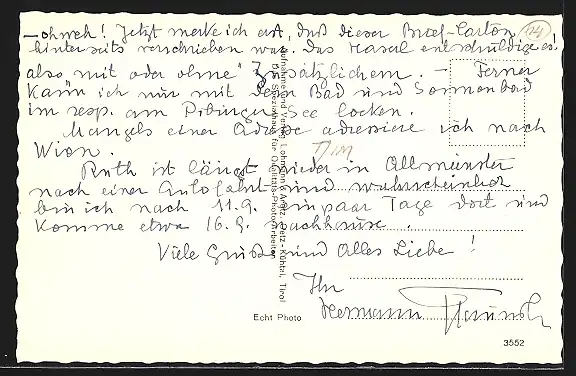 – ohweh! Jetzt merke ich erst, daß dieser Brief-Carton
hinterseits verschrieben war. Das entschuldige
also "mit oder ohne" Zusätzlichem. – Ferner
kann ich nur mit dem Bad und Sonnenbad
im resp. am See locken.
Mangels einer Adresse adressiere ich nach
Wien.
Ruth ist längst wieder in
nach einer Autofahrt und wahrscheinlich
bin ich nach 11.9. ein paar Tage dort und
komme etwa 16.9. nachhause.
Viele Grüße und Alles Liebe!
Ihr
Hermann
Aufnahme und Verlag Lohmann & Arnz, Oetz-Kühtai, Tirol
Das Spezialhaus für Qualitäts-Photoarbeiten
Echt Photo
3552